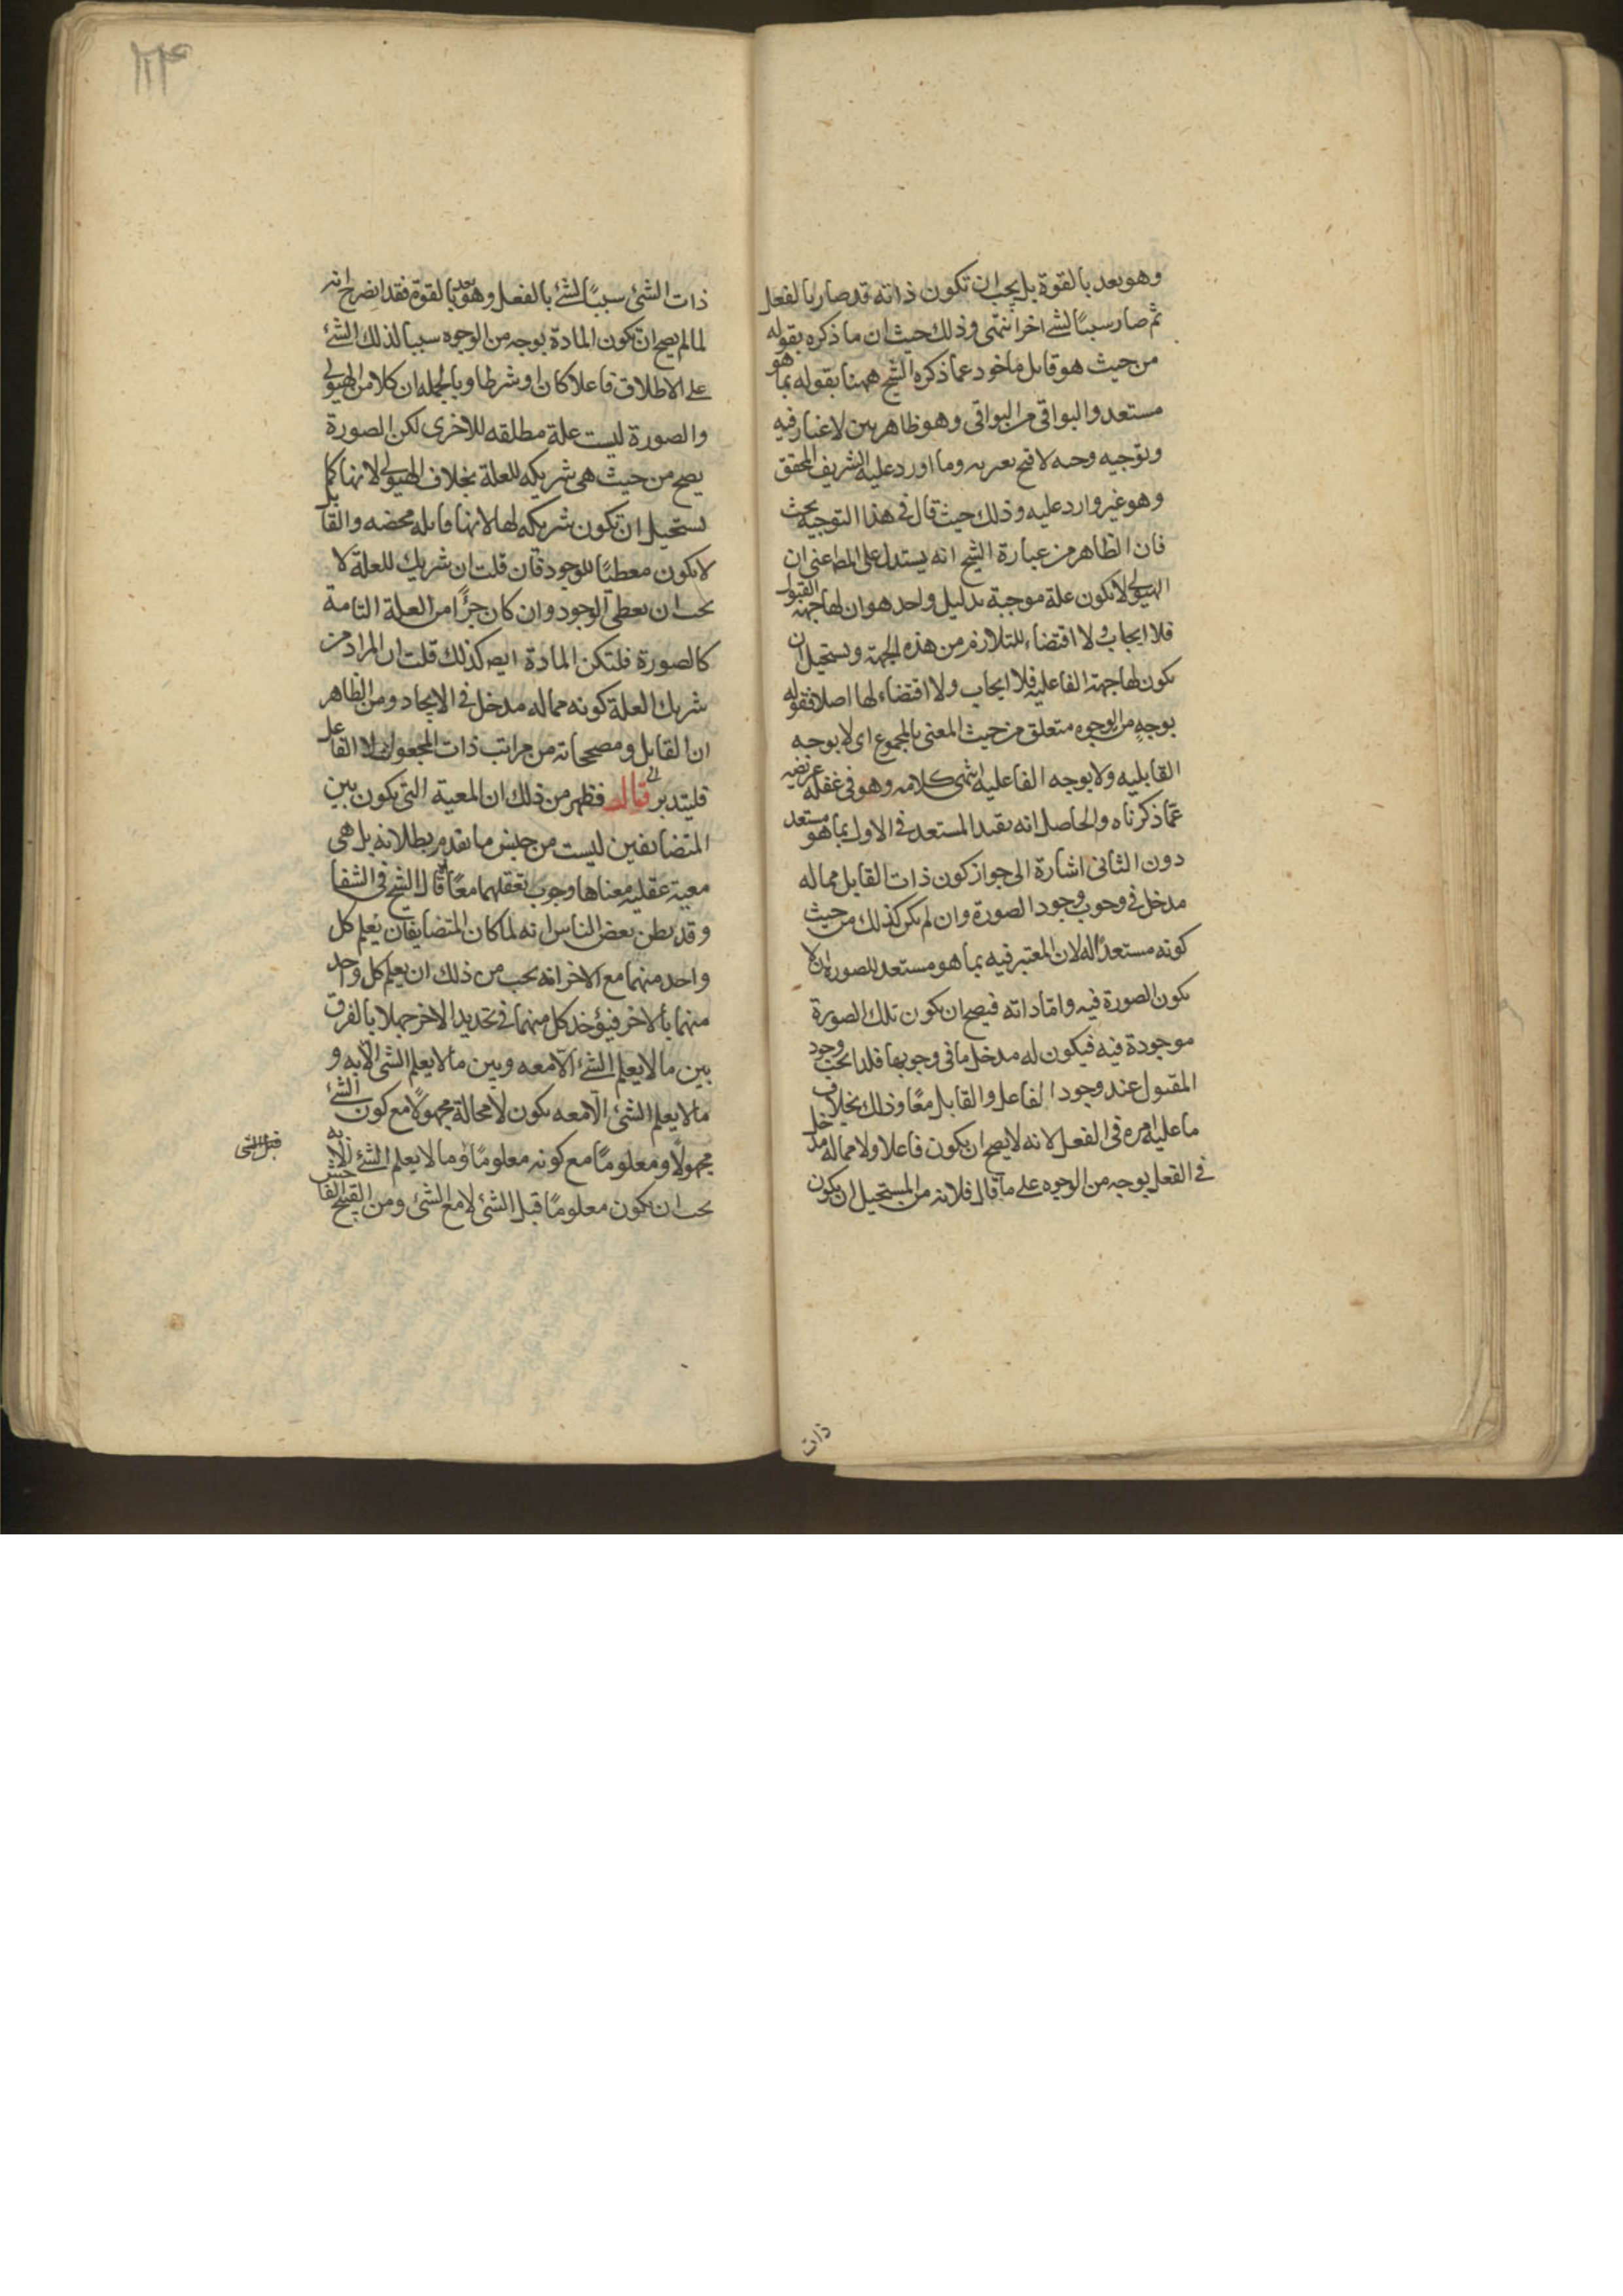 وهو بعد بالقوة بل يجب ان تكون ذاته قد صار بالفعل
ثم صار سببًا لشئ اخر انتهى وذلك حيث ان ما ذكره بقوله
من حيث هو قابل ماخوذ عما ذكره الشيخ ههنا بقوله بما هو
مستعد والبواقى من البواقى وهو ظاهر بين لا غبار فيه
وتوجيه وجيه لا قبح يعريه وما اورد عليه الشريف المحقق
وهو غير وارد عليه وذلك حيث قال فى هذا التوجيه بحث
فان الظاهر من عبارة الشيخ انه يستدل على المط اعنى ان
الهيولى لا يكون علة موجبة بدليل واحد هو ان لها جهة القبول
فلا ايجاب ولا اقتضاء للتلازم من هذه الجهة ويستحيل ان
يكون لها جهة الفاعليه فلا ايجاب ولا اقتضاء لها اصلا فقوله
بوجهٍ من الوجوه متعلق من حيث المعنى بالمجموع اى لا بوجه
القابليه ولا بوجه الفاعليه انتهى كلامه وهو فى غفله عريضه
عمّا ذكرناه والحاصل انه بقيد المستعد فى الاول بما هو مستعد
دون الثانى اشارة الى جواز كون ذات القابل مماله
مدخل فى وجوب وجود الصورة وان لم يكن كذلك من حيث
كونه مستعدًا له لان المعتبر فيه بما هو مستعد للصوره ان لا
يكون الصورة فيه وامّا ذاته فيصح ان يكون تلك الصورة
موجودة فيه فيكون له مدخل ما فى وجوبها فلذا يجب وجود
المقبول عند وجود الفاعل والقابل معًا وذلك بخلاف
ما عليه امره فى الفعل لانه لا يصح ان يكون فاعلا ولا مماله مدخل
فى الفعل بوجه من الوجوه على ما قال فلانه من المستحيل ان يكون
ذات
١٢۴
ذات الشئ سببًا لشئ بالفعل وهو بعد بالقوة فقد اتضح انه
لما لم يصح ان يكون المادة بوجه من الوجوه سببا لذلك الشئ
على الاطلاق فاعلا كان او شرطا وبالجمله ان كلا من الهيولى
والصورة ليست علة مطلقه للاخرى لكن الصورة
يصح من حيث هى شريكه للعلة بخلاف الهيولى لانها كما
يستحيل ان تكون شريكه لها لانها قابله محضه والقابل
لا يكون معطيًا للوجود فان قلت ان شريك للعلة لا
يجب ان يعطى الوجود وان كان جزًا من العلة التامة
كالصورة فلتكن المادة ايض كذلك قلت ان المراد من
شريك العلة كونه مماله مدخل فى الايجاد ومن الظاهر
ان القابل ومصححاته من مراتب ذات المجعول لا الفاعل
فليتدبر قال فظهر من ذلك ان المعية التى يكون بين
المتضايفين ليست من جنس ما تقدم بطلانه بل هى
معية عقليه معناها وجوب تعقلهما معًا قال الشيخ فى الشفا
وقد يظن بعض الناس انه لما كان المتضايفان يعلم كل
واحد منهما مع الاخر انه يجب من ذلك ان يعلم كل واحد
منهما بالاخر فيؤخذ كل منهما فى تحديد الاخر جهلا بالفرق
بين ما لا يعلم الشئ الّا معه وبين ما لا يعلم الشئ الّا به و
ما لا يعلم الشئ الّا معه يكون لا محالة مجهولًا مع كون الشئ
مجهولًا ومعلومًا مع كونه معلومًا وما لا يعلم الشئ الا به
يجب ان يكون معلومًا قبل الشئ لا مع الشئ ومن القبيح الفاحش